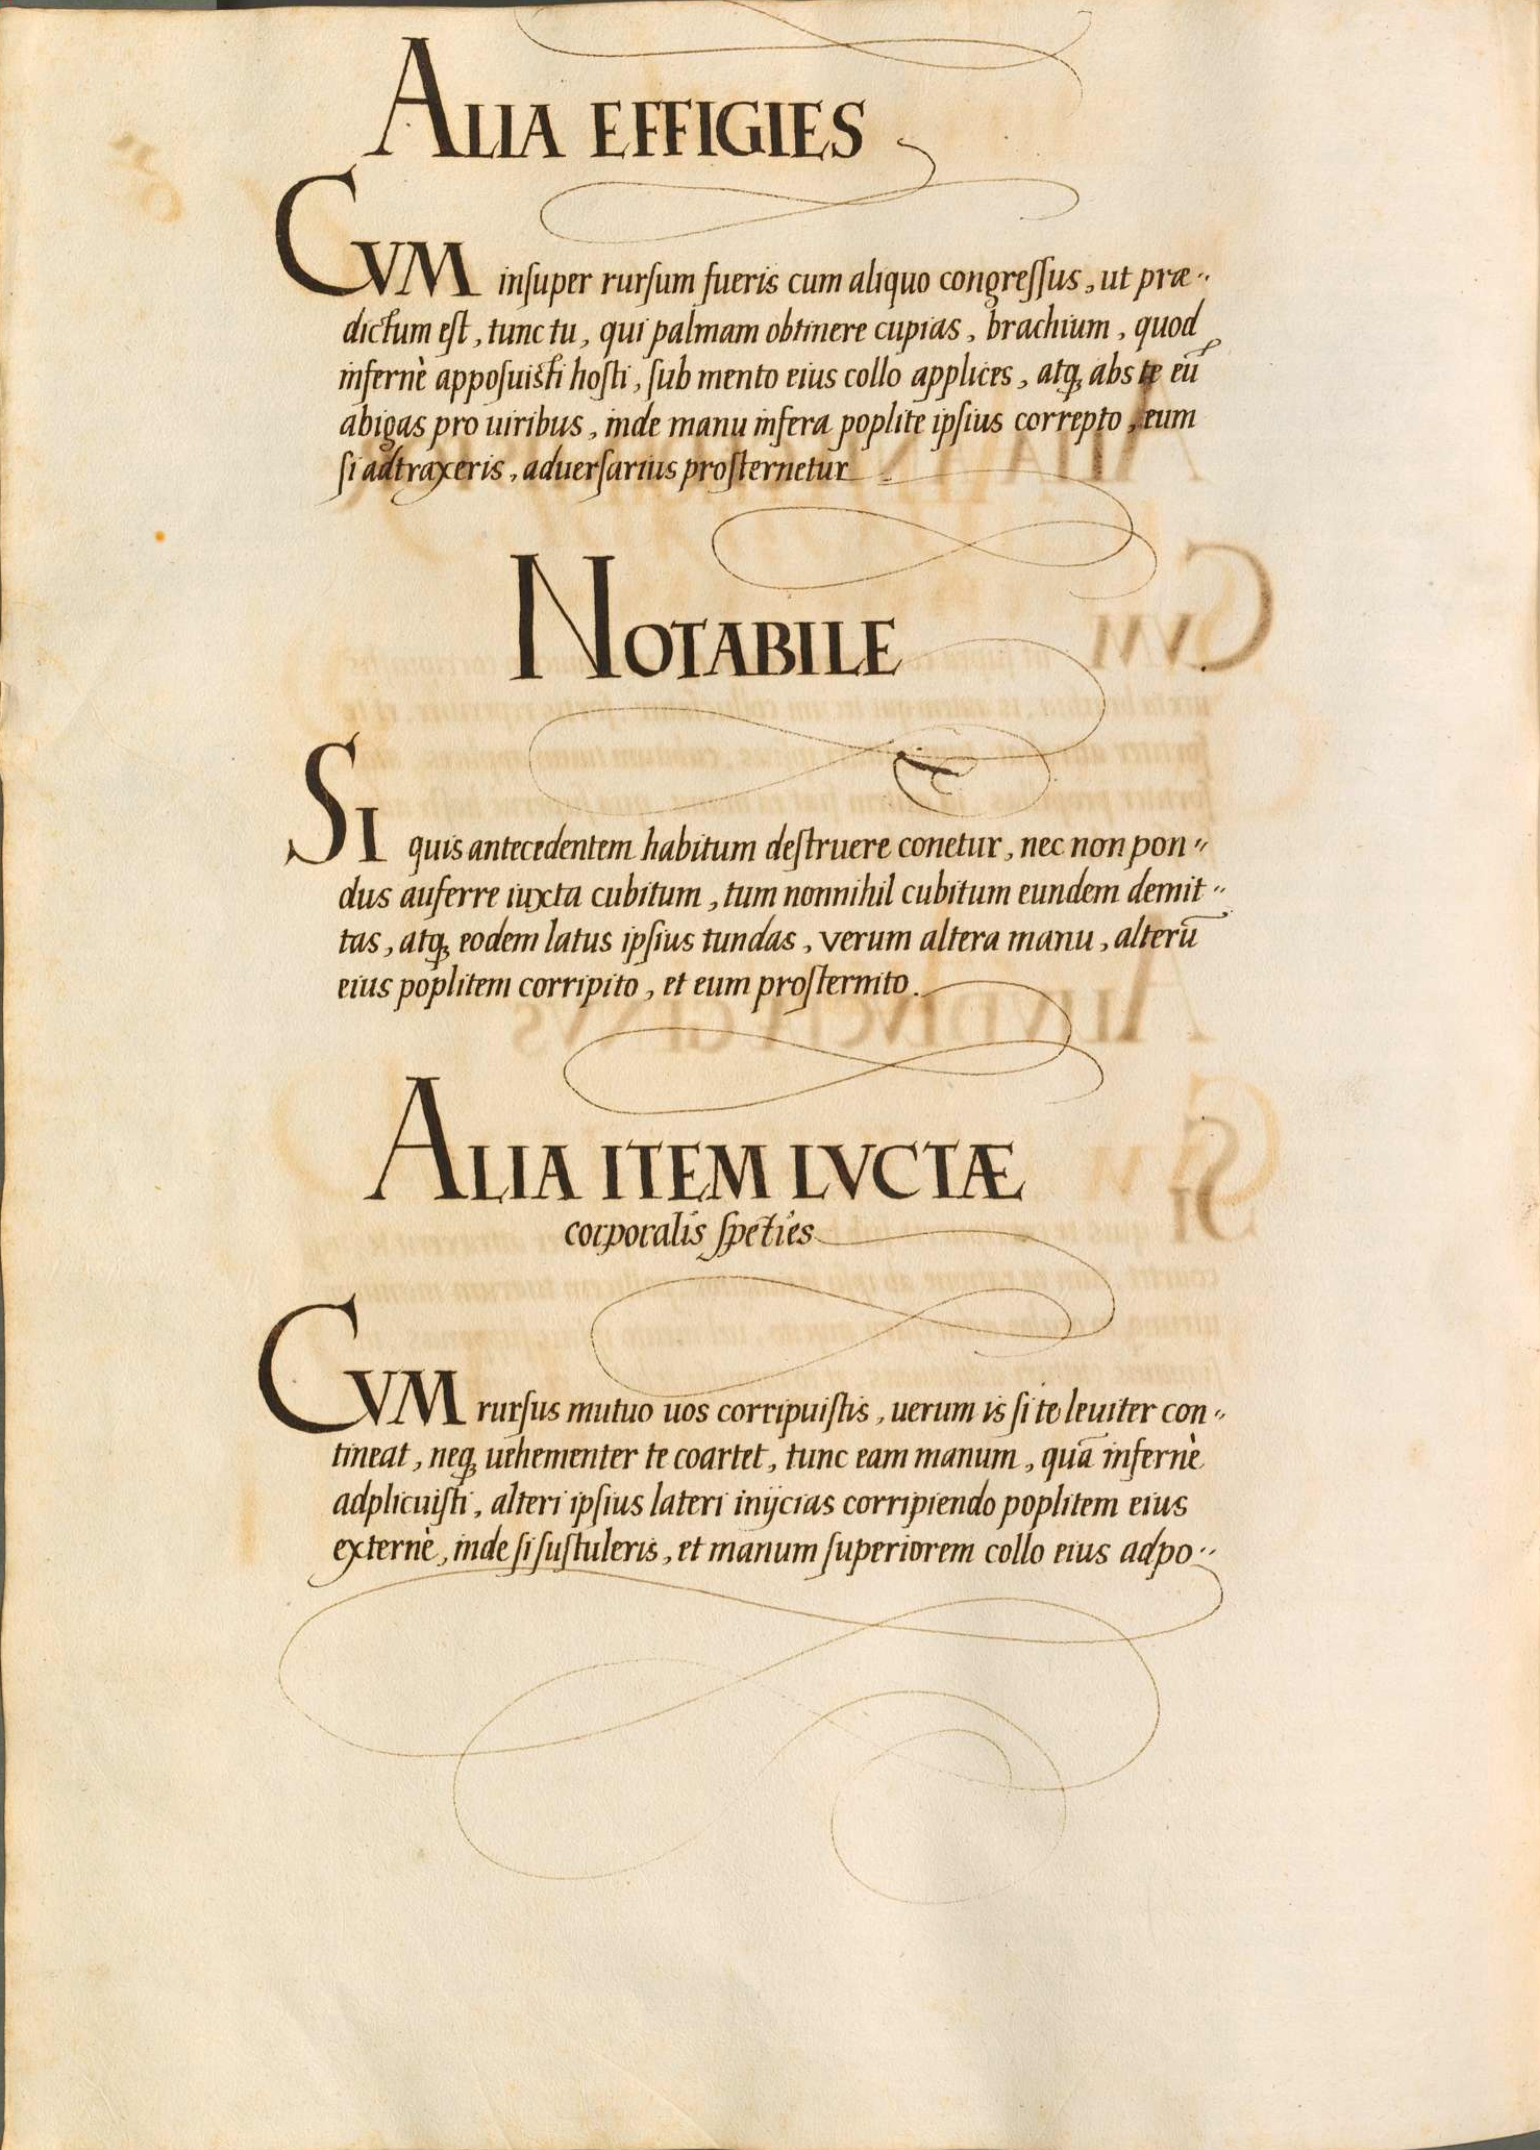 ALIA EFFIGIES
CVM inſuper rurſum fueris cum aliquo congreſſus, ut præ-
dictum eſt, tunc tu, qui palmam obtinere cupias, brachium, quod
infernè appoſuiſti hoſti, ſub mento eius collo applices, atq; abs te eū
abigas pro uiribus, inde manu infera poplite ipſius correpto, eum
ſi adtraxeris, aduerſarius proſternetur
NOTABILE
SI quis antecedentem habitum deſtruere conetur, nec non pon-
dus auferre iuxta cubitum, tum nonnihil cubitum eundem demit-
tas, atq; eodem latus ipſius tundas, verum altera manu, alterū
eius poplitem corripito, et eum proſternito.
ALIA ITEM LVCTÆ
corporalis ſpeties
CVM rurſus mutuo uos corripuiſtis, uerum is ſi te leuiter con-
tineat, neq; uehementer te coartet, tunc eam manum, quā infernè
adplicuiſti, alteri ipſius lateri inijcias corripiendo poplitem eius
externè, inde ſi ſuſtuleris, et manum ſuperiorem collo eius adpo-